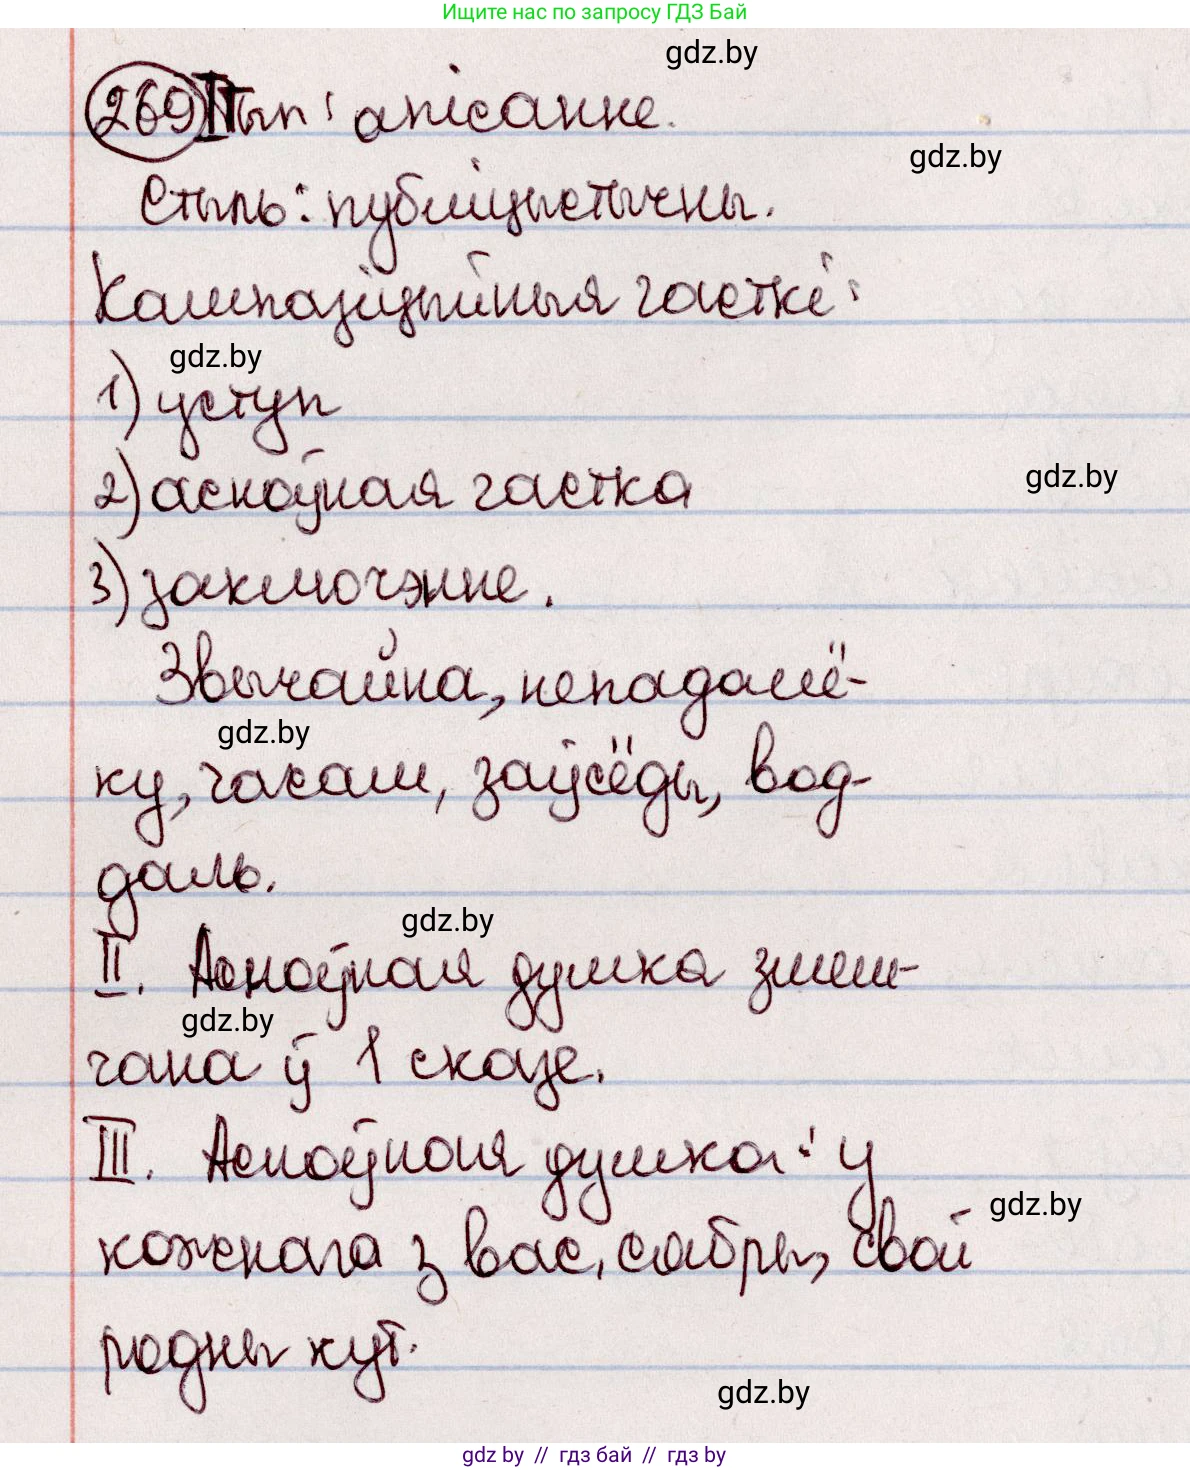 Ищите нас по запросу ГДЗ Бай
gdz.by
269 I Тып: апісанне.
gdz.by
Стыль: публіцыстычны.
Кампазіцыйныя часткі:
gdz.by
1) уступ
2) асноўная частка
gdz.by
3) заключэнне.
Звычайна, непадалё-
gdz.by
ку, часам, заўсёды, вод-
даль.
gdz.by
II. Асноўная думка змеш-
gdz.by
чана ў 1 сказе.
III. Асноўная думка: у
gdz.by
кожнага з вас, сябры, свой
родны кут.
gdz.by
gdz by // гдз бай // гдз by